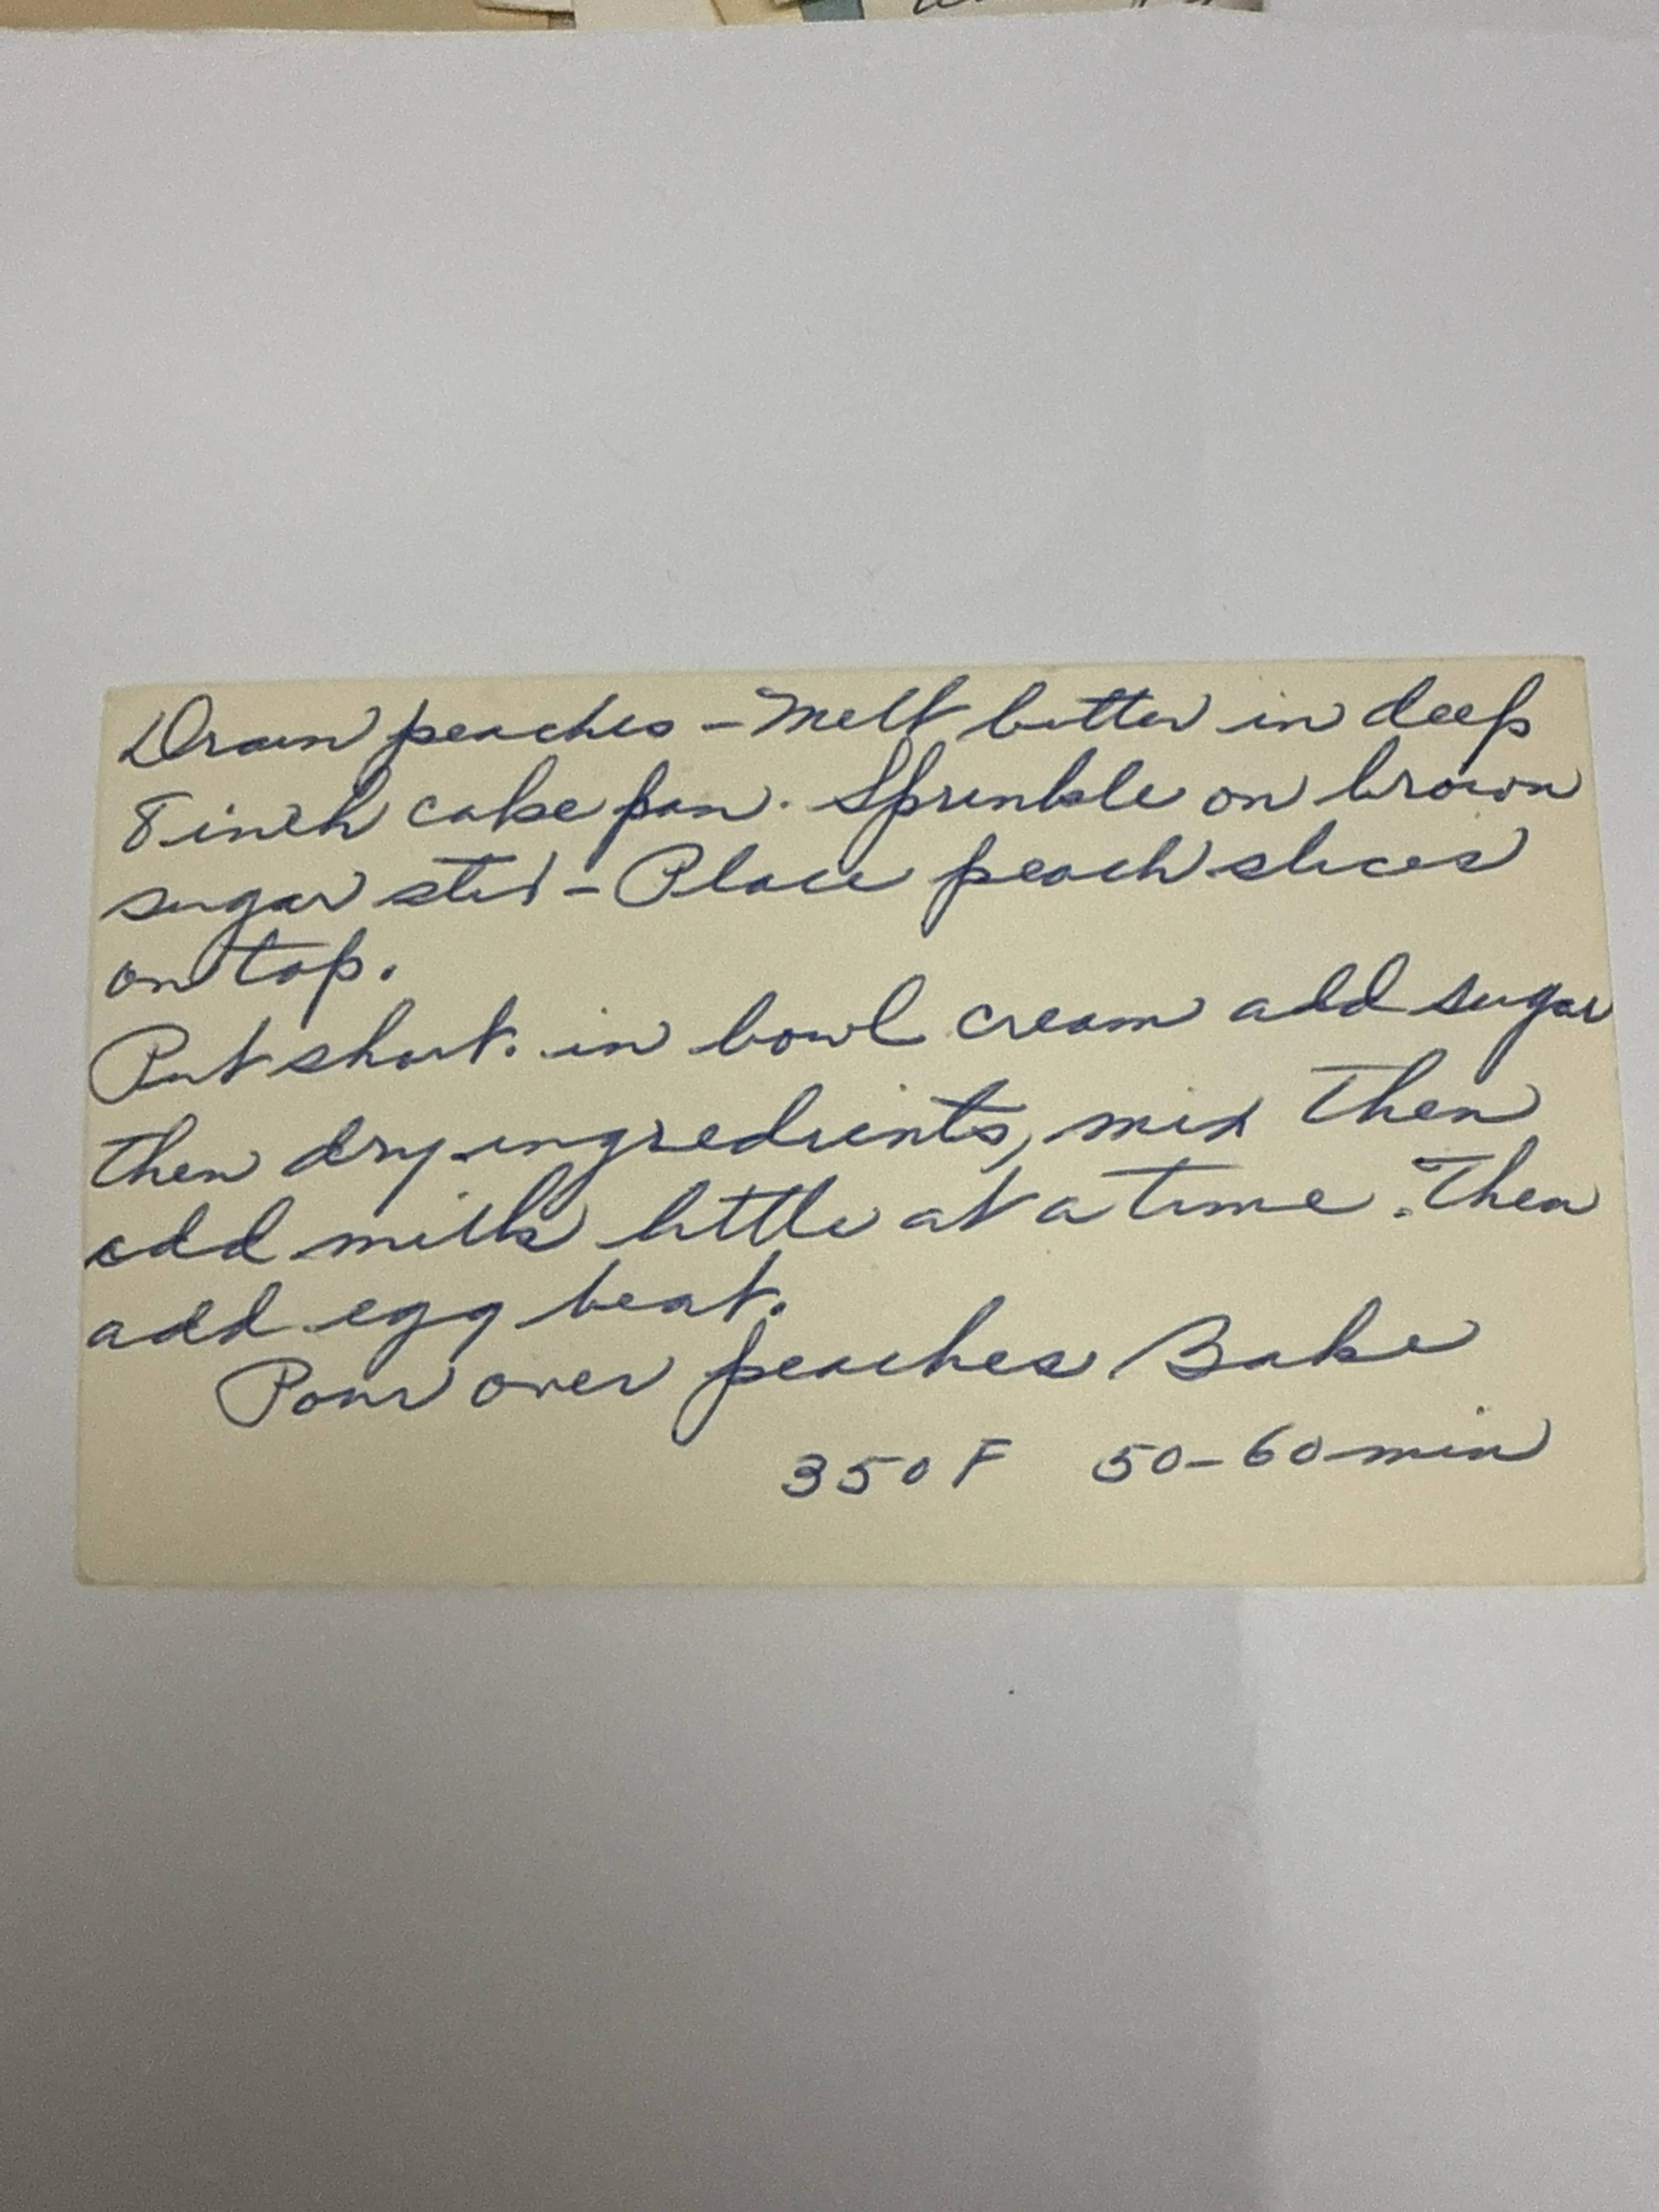 Drain peaches - Melt butter in deep
8 inch cake pan. Sprinkle on brown
sugar stir - Place peach slices
on top.
Put short. in bowl cream add sugar
then dry ingredients, mix Then
add milk little at a time. Then
add egg beat.
Pour over peaches Bake
350 F 50-60 min